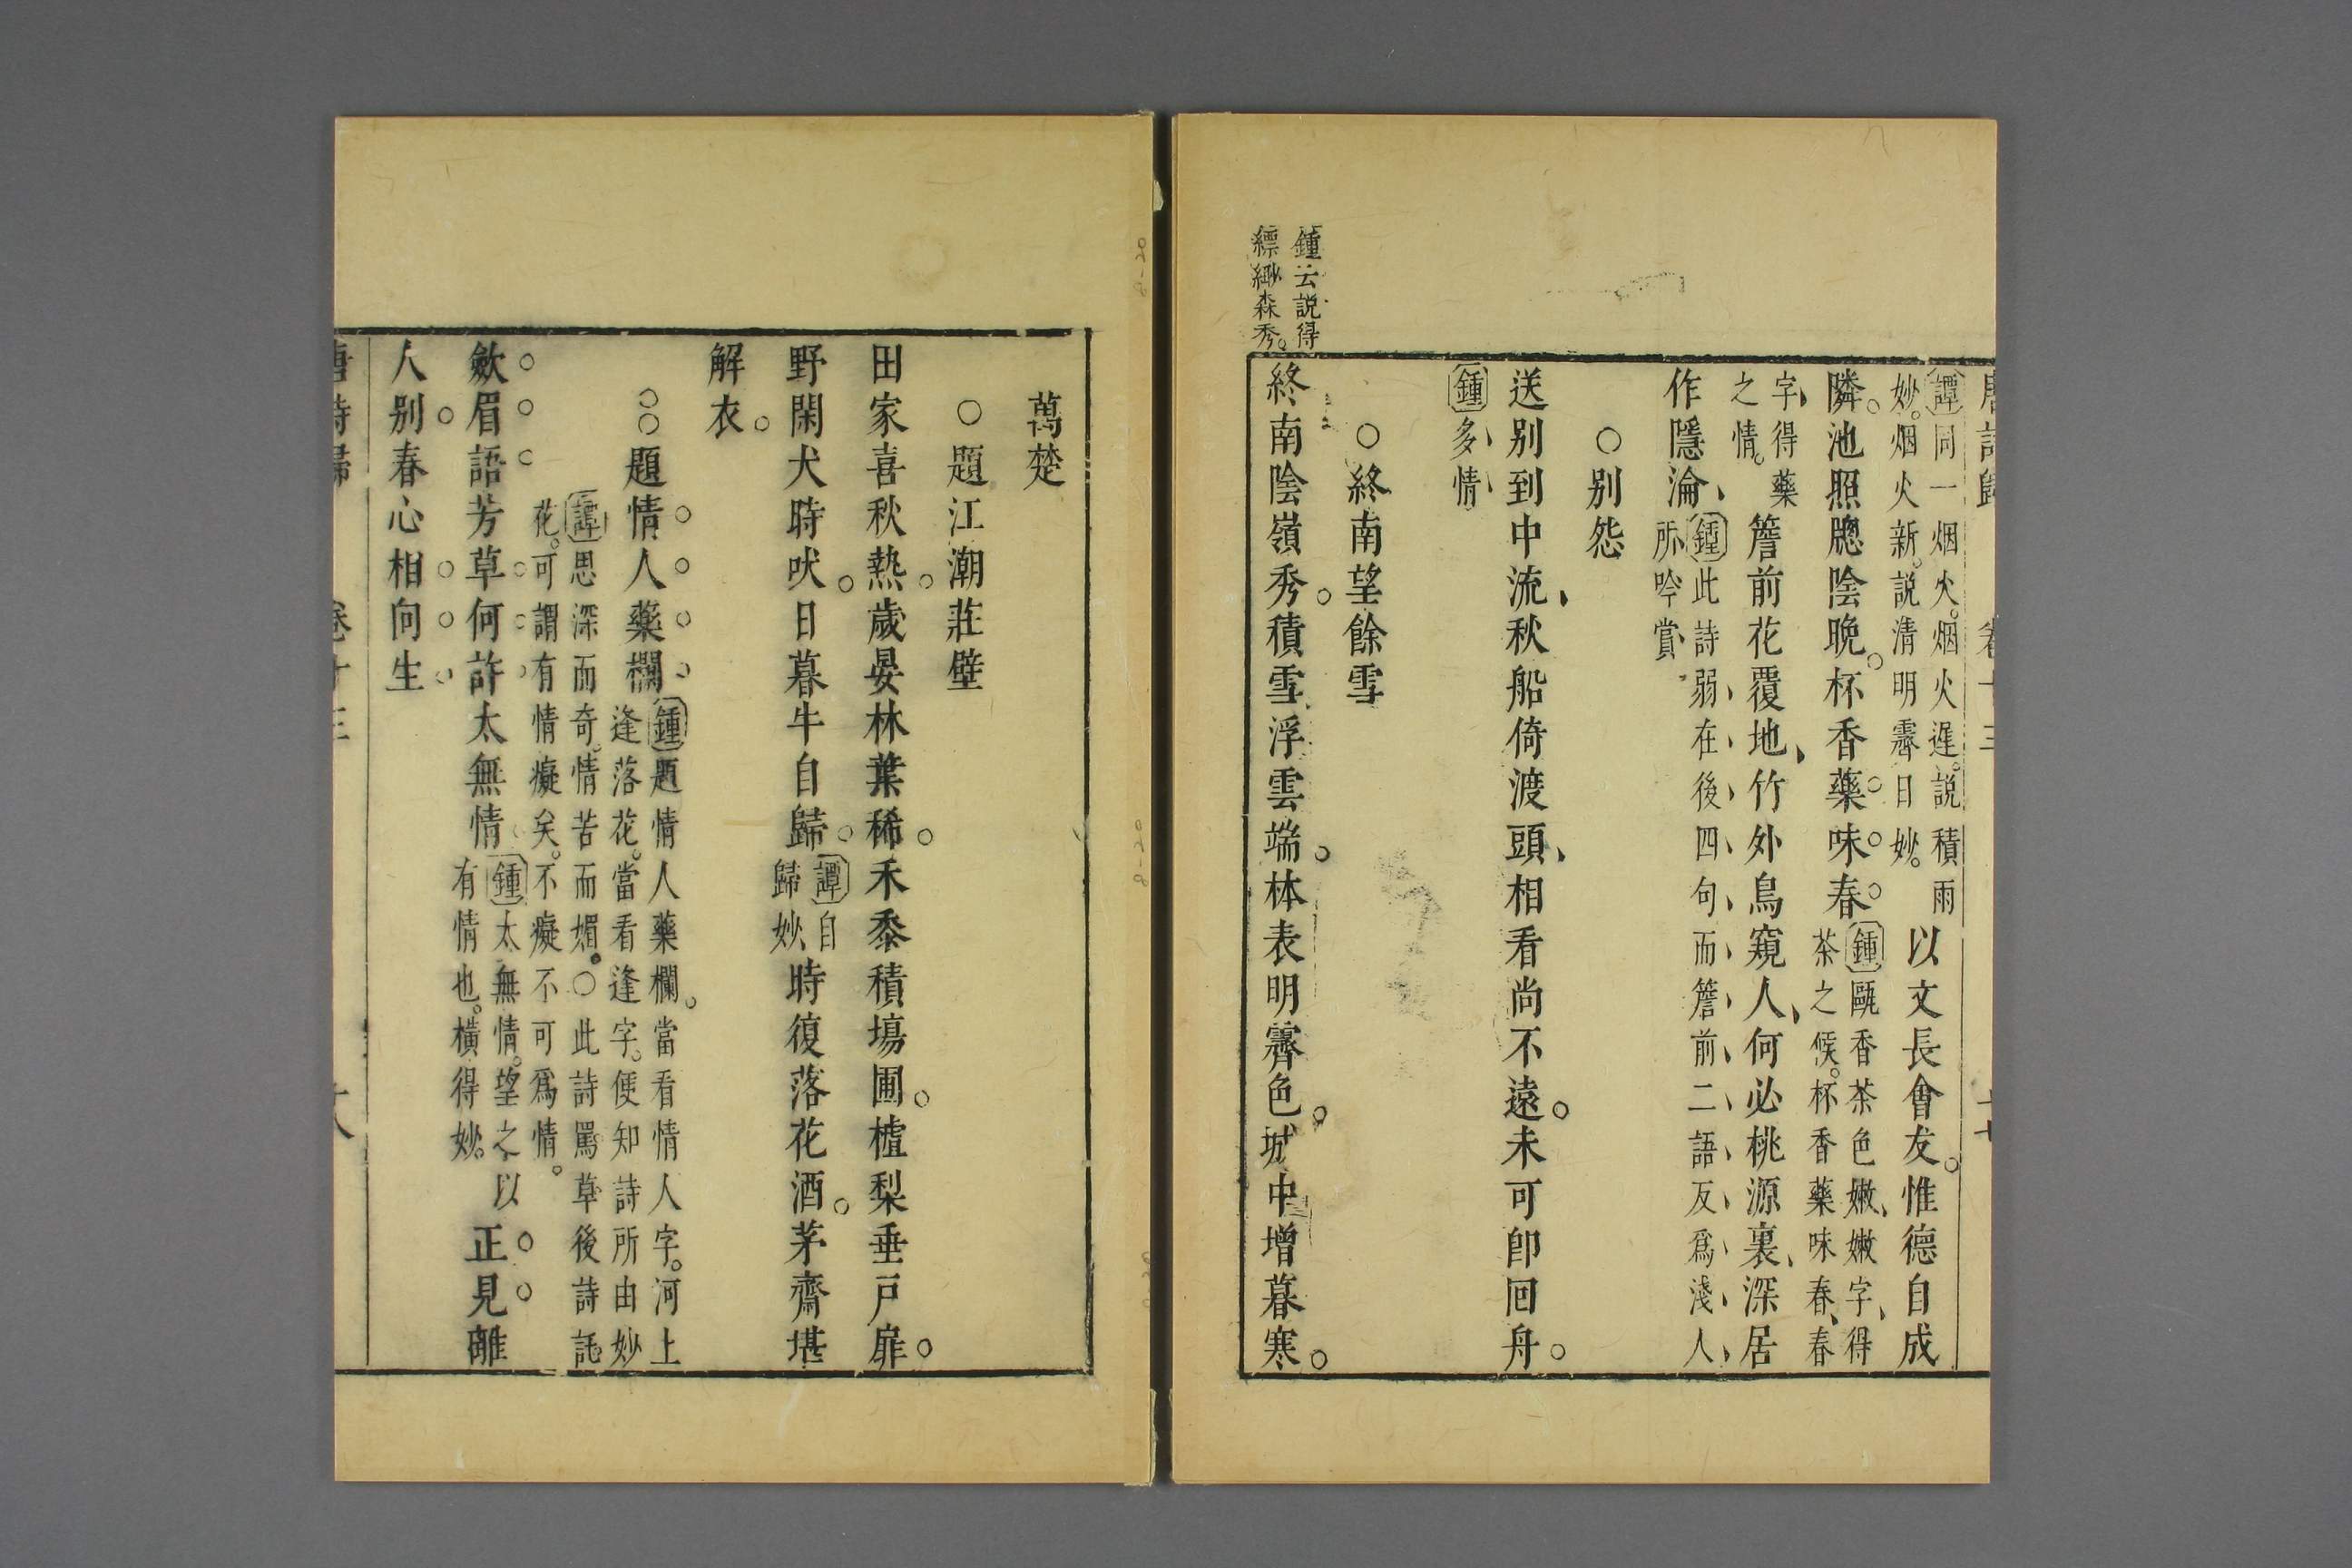 唐詩歸　卷十三　十七
譚同一烟火。烟火遲。説積雨
妙。烟火新。説清明霽日妙。
以文長會友。惟德自成
隣。池照牕陰晚。杯香藥味春。
鍾甌香茶色嫩、嫩字、得
茶之候。杯香藥味春、春
字、得藥
之情。
簷前花覆地、竹外鳥窺人、何必桃源裏、深居
作隱淪、
鍾此詩弱、在、後、四、句、而、簷、前、二、語、反、爲、淺、人、
所吟賞
○別怨
送別到中流、秋船倚渡頭、相看尚不遠。未可卽回舟。
鍾多、情、
○終南望餘雪
終南陰嶺秀。積雪浮雲端。林表明霽色。城中增暮寒。
鍾云説得
縹緲森秀。
萬楚
○題江潮莊壁
田家喜秋熱。歲晏林葉稀。禾黍積場圃。樝梨垂戸扉。
野閑犬時吠。日暮牛自歸。
譚自
歸妙、
時復落花酒。茅齋堪
解衣。
○○題情人藥欄
鍾題情人藥欄。當看情人字。河上
逢落花。當看逢字。便知詩所由妙
譚思深而奇。情苦而媚。○此詩罵草後詩託
花。可謂有情癡矣。不癡不可爲情。
斂眉語芳草何許太無情
鍾太無情。望之以
有情也。橫得妙。
正見離
人別春心相向生
唐詩歸　卷十三　十八